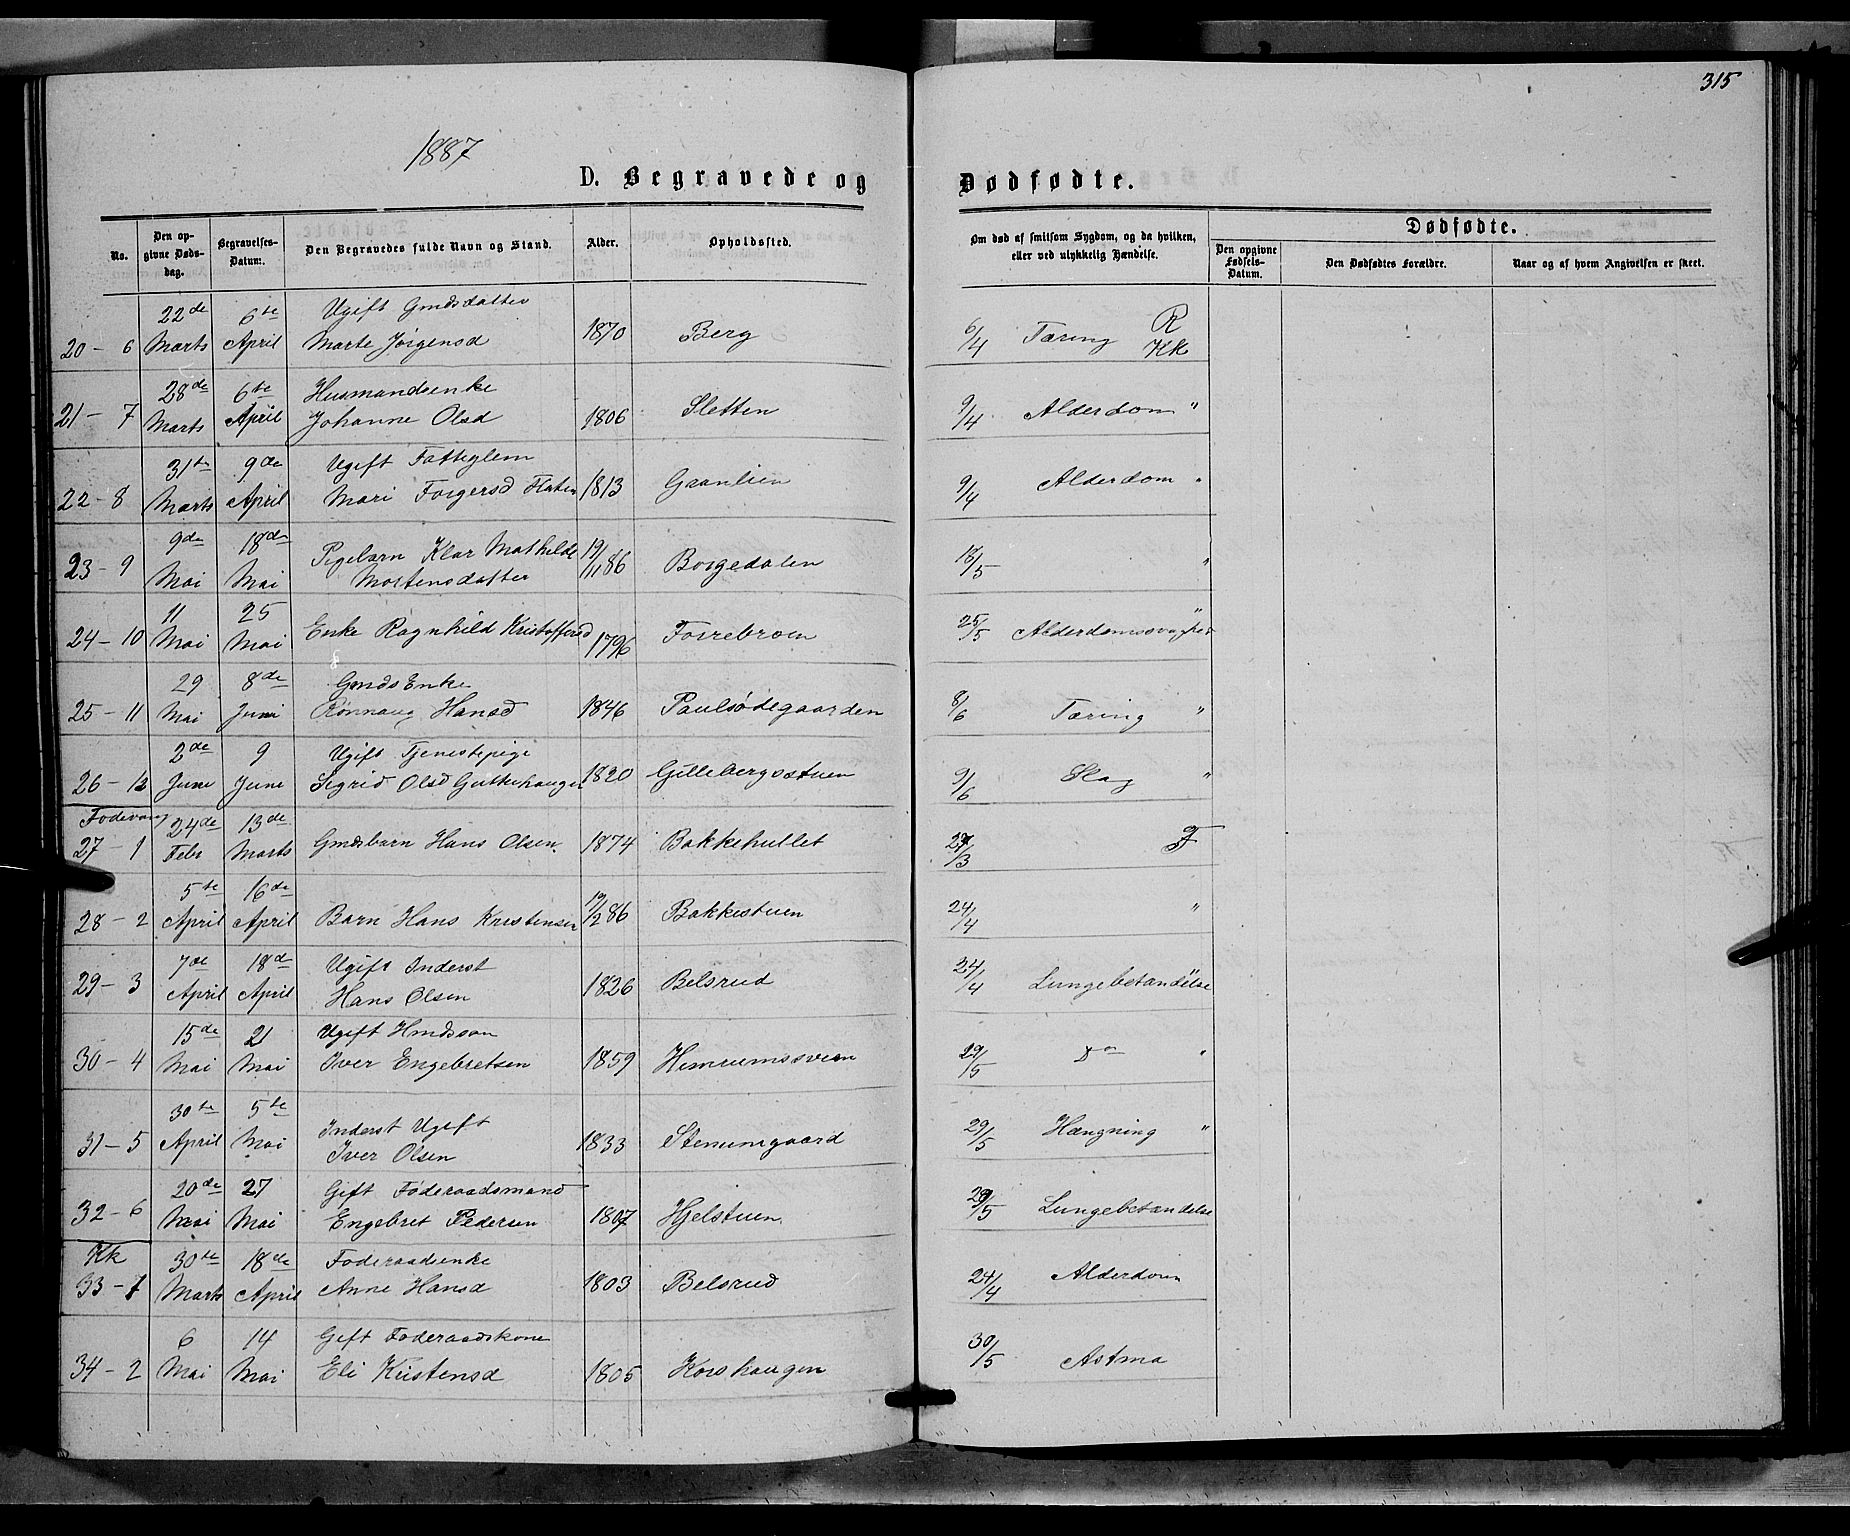 315
1887
D. Begravede og Dødfødte.
No.
Den op-
givne Døds-
dag.
Begravelses-
Datum.
Den Begravedes fulde Navn og Stand.
Alder.
Opholdssted.
Om død af smitsom Sygdom, og da hvilken,
eller ved ulykkelig Hændelse.
Dødfødte.
Den opgivne
Fødsels-
Datum.
Den Dødfødtes Forældre.
Naar og af hvem Angivelsen er skeet.
22de 6te Ugift Gmdsdatter R
20 - 6 Marts April Marte Jørgensd 1870 Berg 6/4 Tæring Kk
28de 6te Husmandsenke
21 - 7 Marts April Johanne Olsd 1806 Sletten 9/4 Alderdom "
31te 9de Ugift Fattiglem
22 - 8 Marts April Mari Torgersd 1813 Graanlien 9/4 Alderdom "
9de 18de Pigebarn Klar Mathilde 19/11 86 Borgedalen 18/5 "
23 - 9 Mai Mai Mortensdatter
11 25
24 - 10 Mai Mai Enke Ragnhild Kristoffersd 1796 25/5 Alderdomssvaghed "
29 8de Gmds Enke
25 - 11 Mai Juni Rønnaug Hansd 1846 Paulsødegaarden 8/6 Tæring "
2de 9 Ugift Tjenestepige
26 - 12 June June Sigrid Olsd 1820 Gillebergsstuen 9/6 Slag "
Fodevang 24de 13de
27 - 1 Febr Marts Gmdsbarn Hans Olsen. 1874 Bakkehullet 27/3 F
5te 16de
28 - 2 April April Barn Hans Kristensen 19/2 86 Bakkestuen 24/4 "
7de 18de Ugift Inderst
29 - 3 April April Hans Olsen 1826 Belsrud 24/4 Lungebetændelse
15de 21 Ugift Hmdssøn
30 - 4 Mai Mai Iver Engebretsen 1859 29/5 Do "
30te 5te Inderst Ugift
31 - 5 April Mai Iver Olsen 1833 Stenumgaard 29/5 Hængning "
20de 27 Gift Føderaadsmand
32 - 6 Mai Mai Engebret Pedersen 1807 Hjelstuen 29/5 Lungebetændelse
Kk 30te 18de Føderaadsenke
33 - 1 Marts April Anne Hansd 1803 Belsrud 24/4 Alderdom
6 14 Gift Føderaadskone
34 - 2 Mai Mai Eli Kristensd 1805 Korshaugen 30/5 Astma